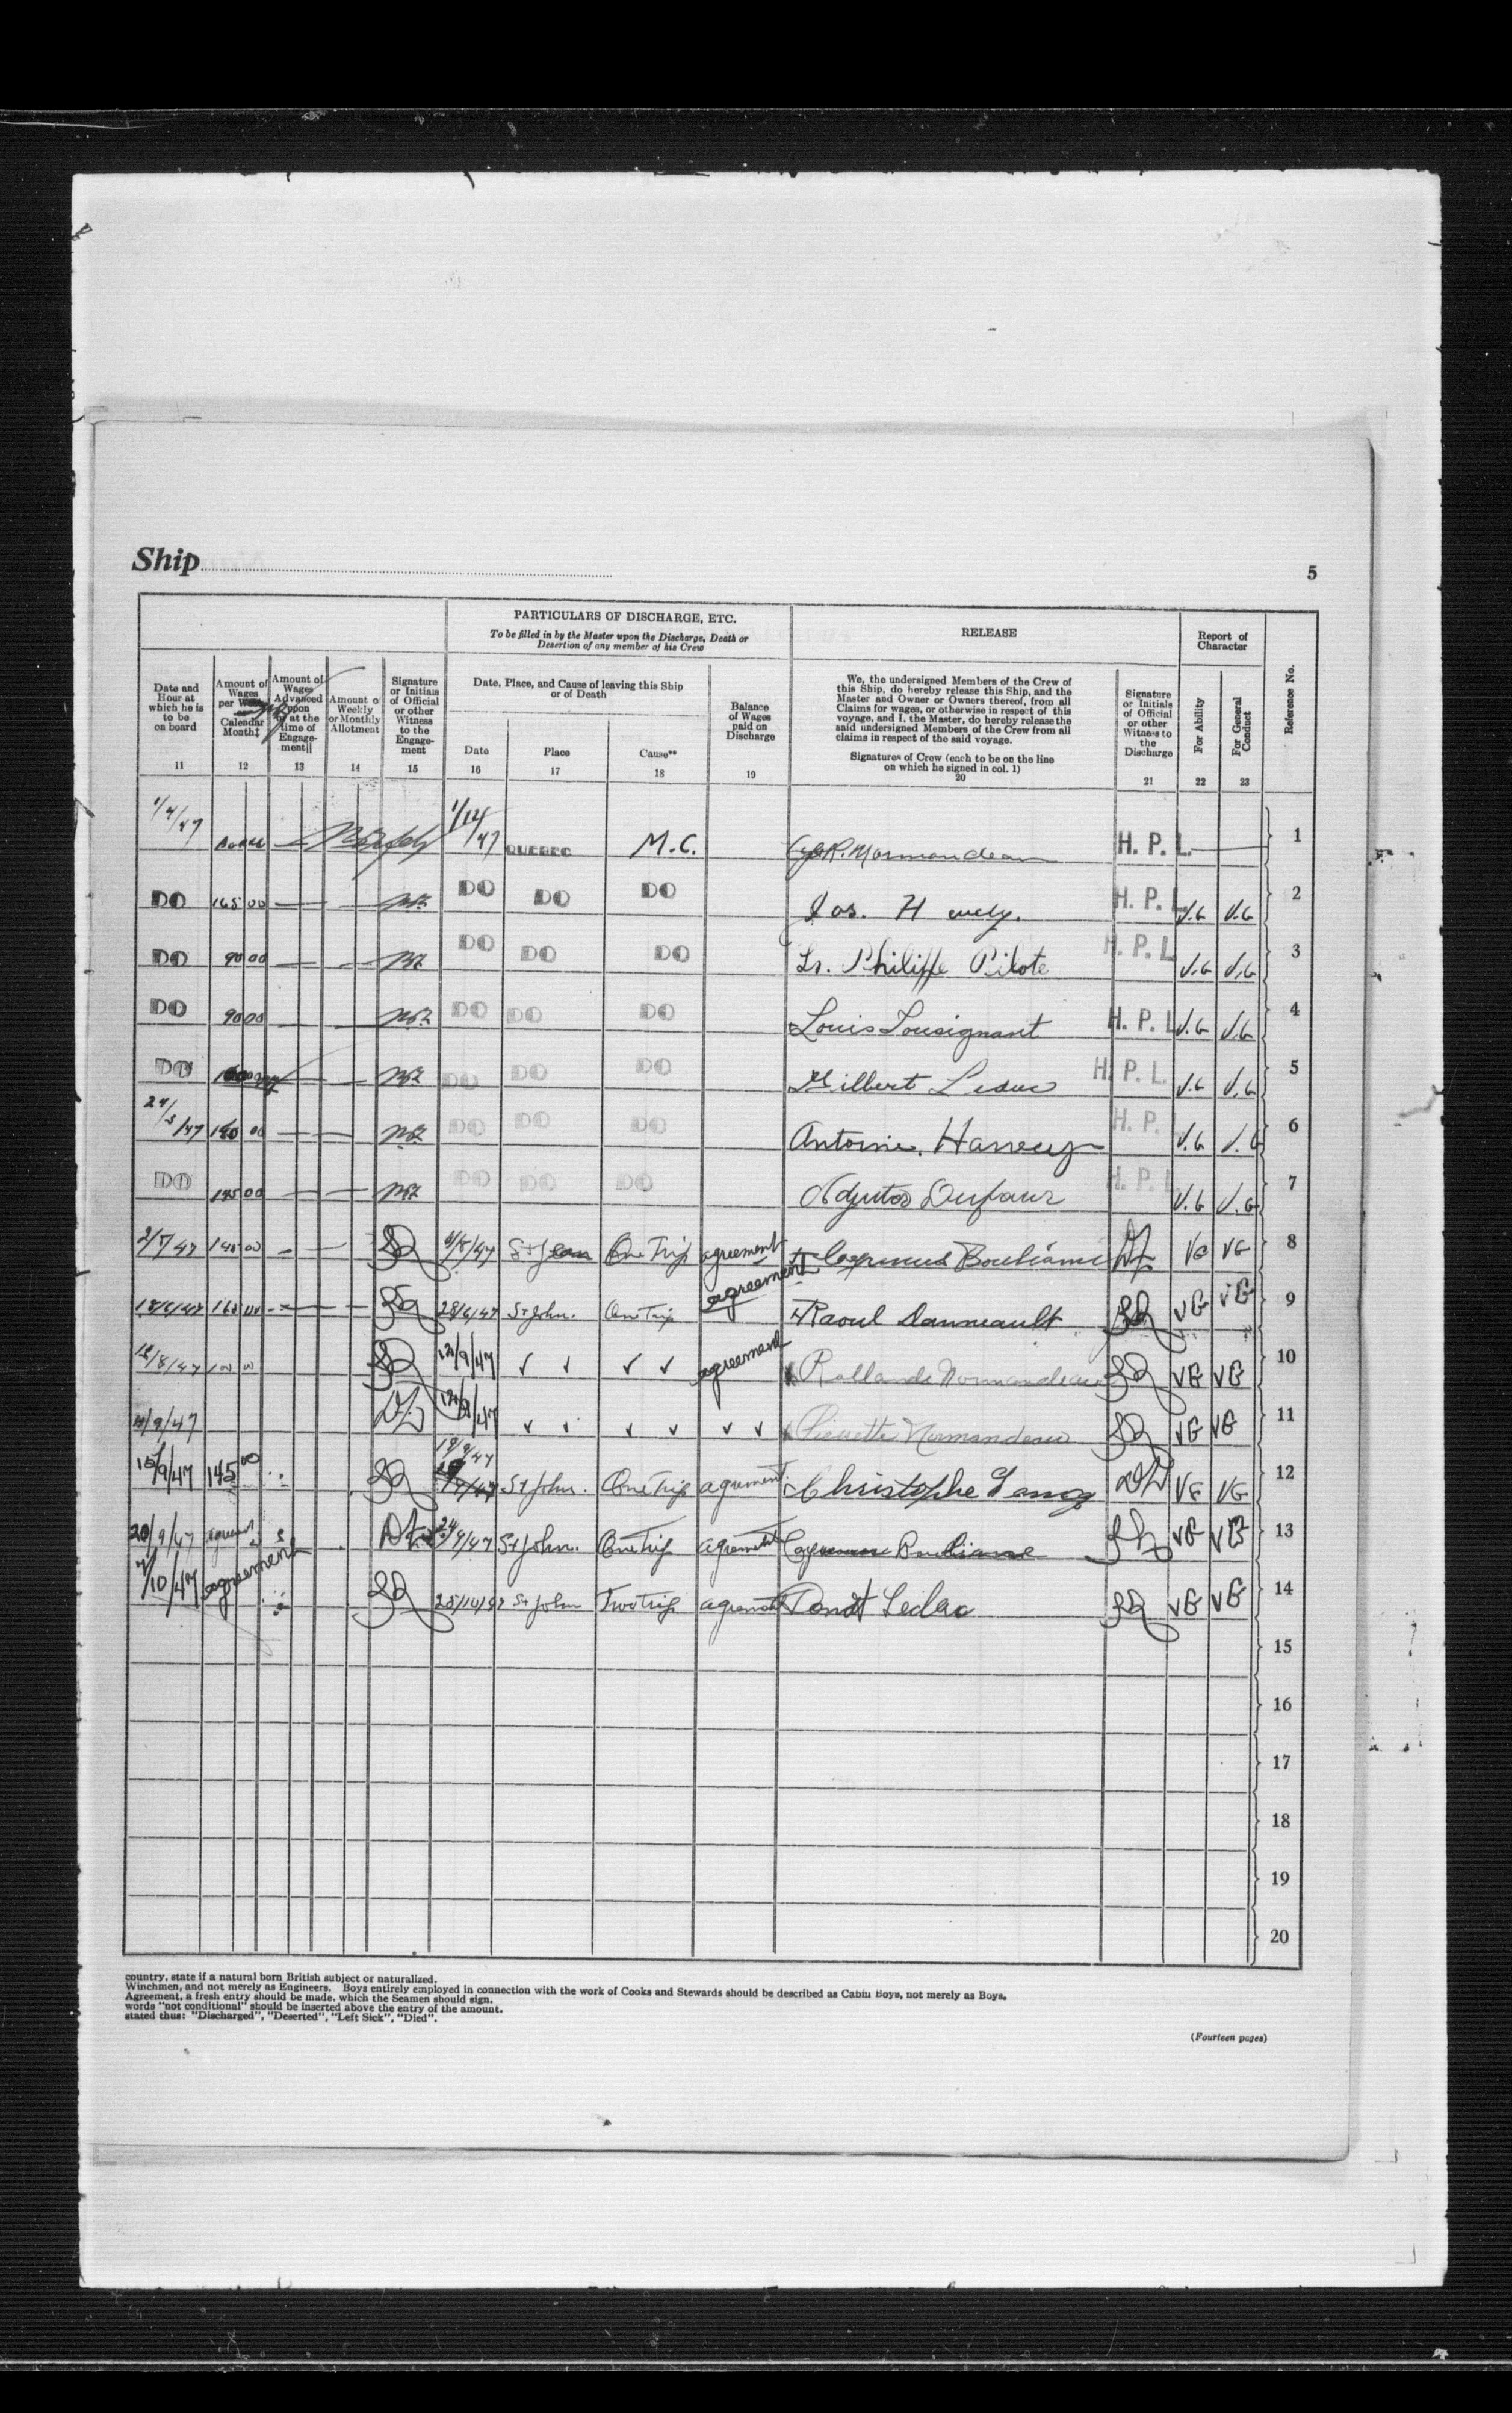 Ship
5
PARTICULARS OF DISCHARGE, ETC.
To be filled in by the Master upon the Discharge, Death or
Desertion of any member of his Crew
RELEASE
Report of
Character
Reference No.
Date and
Hour at
which he is
to be
on board
11
Amount of
Wages
per
Calendar
Month‡
12
Amount of
Wages
Advanced
upon
or at the
time of
Engage-
ment||
13
Amount o
Weekly
or Monthly
Allotment
14
Signature
or Initials
of Official
or other
Witness
to the
Engage-
ment
15
Date, Place, and Cause of leaving this Ship
or of Death
Date
16
Place
17
Cause**
18
Balance
of Wages
paid on
Discharge
19
We, the undersigned Members of the Crew of
this Ship, do hereby release this Ship, and the
Master and Owner or Owners thereof, from all
Claims for wages, or otherwise in respect of this
voyage, and I, the Master, do hereby release the
said undersigned Members of the Crew from all
claims in respect of the said voyage.
Signatures of Crew (each to be on the line
on which he signed in col. 1)
20
Signature
or Initials
of Official
or other
Witness to
the
Discharge
21
For Ability
22
For General
Conduct
23
1/4/47 1/12/47 QUEBEC M.C. H. P. L. 1
DO 165 00 DO DO DO Jos. H H. P. L V.G V.G 2
DO 90 00 DO DO DO Ls. Philippe Pilote H. P. L V.G V.G 3
DO 90 00 DO DO DO Louis Lousignant H. P. L V.G V.G 4
DO DO DO DO Gilbert Leduc H. P. L. V.G V.G 5
/47 00 DO DO DO Antoine Harvey H. P. V.G V.G 6
DO 145 00 DO DO DO Adjutor Dufour H. P. L V.G V.G 7
2/7/47 145 00 /47 St Jean One Trip agreement VG VG 8
18/6/47 28/6/47 St John. One Trip agreement Raoul Danneault VG VG 9
12/8/47 100 00 12/9/47 ✓ ✓ ✓ ✓ agreement Rollande Normandeau VG VG 10
/9/47 /47 ✓ ✓ ✓ ✓ ✓ ✓ Pierrette Normandeau VG VG 11
15/9/47 145 00 19/9/47 St John. One Trip agrement Christophe VG VG 12
20/9/47 24/9/47 St John. One Trip agrement VG VG 13
/10/47 agreement 25/10/47 St John Two Trip agrement VG VG 14
15
16
17
18
19
20
country, state if a natural born British subject or naturalized.
Winchmen, and not merely as Engineers. Boys entirely employed in connection with the work of Cooks and Stewards should be described as Cabin Boys, not merely as Boys.
Agreement, a fresh entry should be made, which the Seamen should sign.
words "not conditional" should be inserted above the entry of the amount.
stated thus: "Discharged", "Deserted", "Left Sick", "Died".
(Fourteen pages)